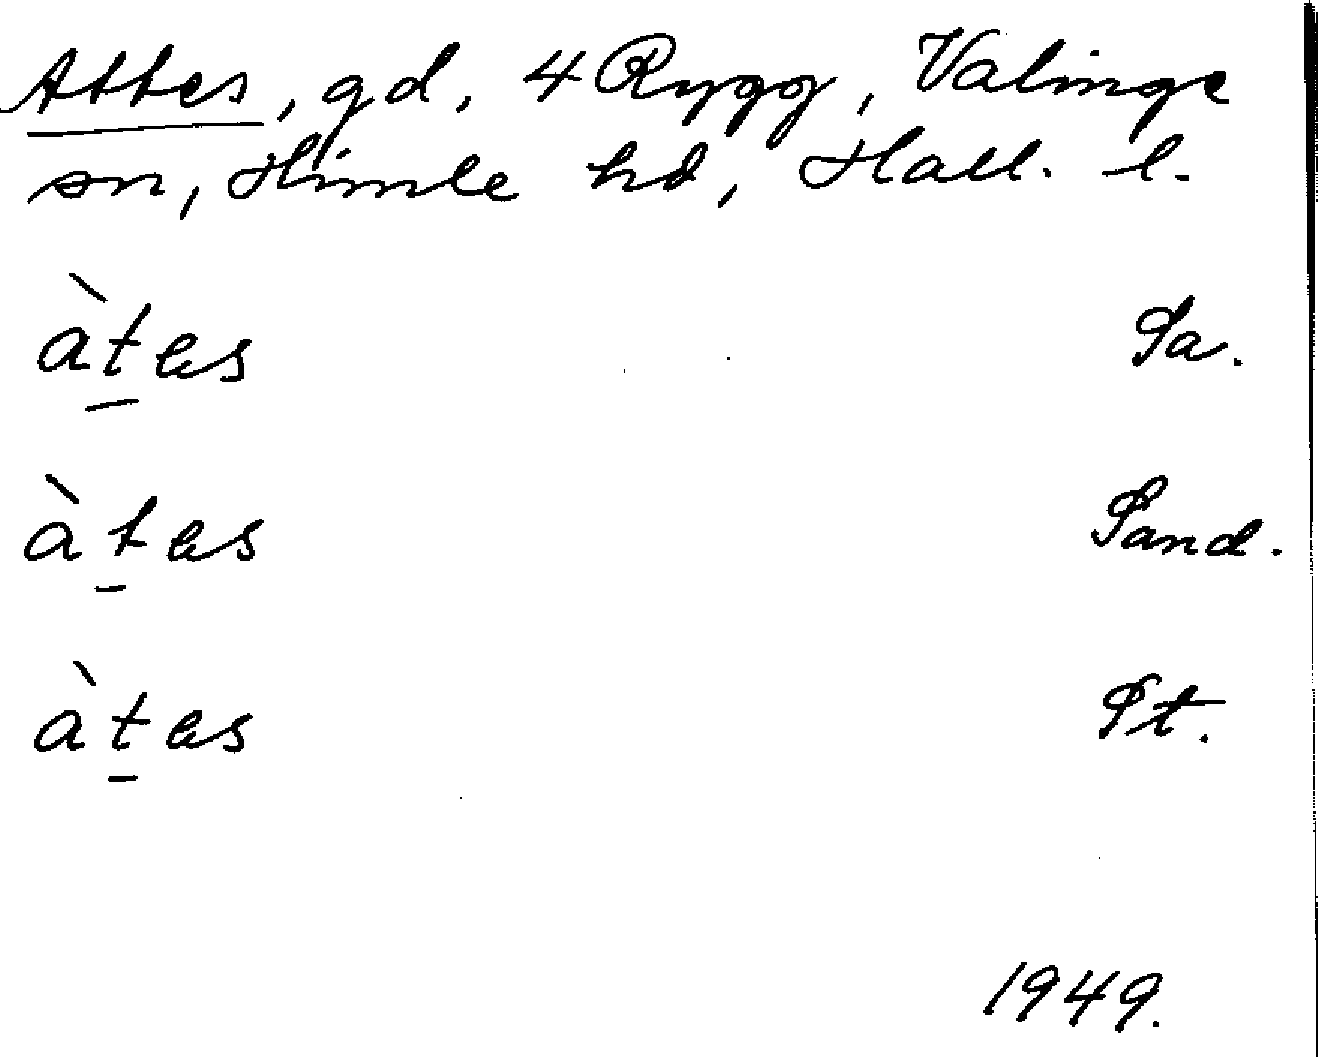 Attes, gd, 4 Rygg, Valinge
sn, Himle hd, Hall. l.
àt̲es Sa.
àt̲es Sand.
àt̲es St.
1949.